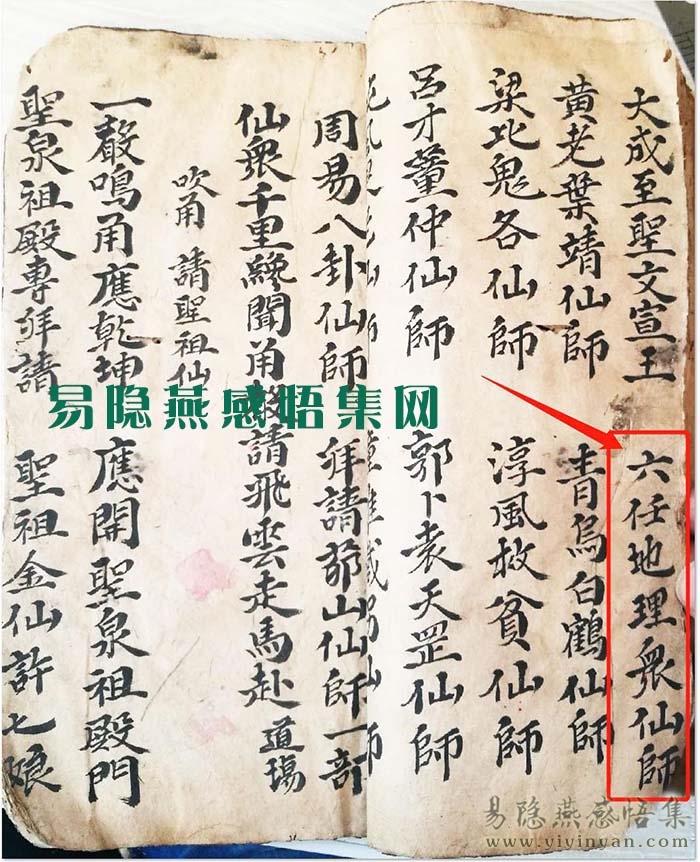 大成至聖文宣王 六任地理眾仙師
黃老葉靖仙師 青烏白鶴仙師
梁北鬼各仙師 淳風救貧仙師
呂才董仲仙師 郭卜袁天罡仙師
周易八卦仙師 拜請茆山仙師一部
仙眾千里纔聞角聲請飛雲走馬赴道場
吹角 請聖祖仙
一聲鳴角應乾坤 應開聖泉祖殿門
聖泉祖殿專拜請 聖祖金仙許七娘
易隐燕感悟集网
易隐燕感悟集
www.yiyinyan.com